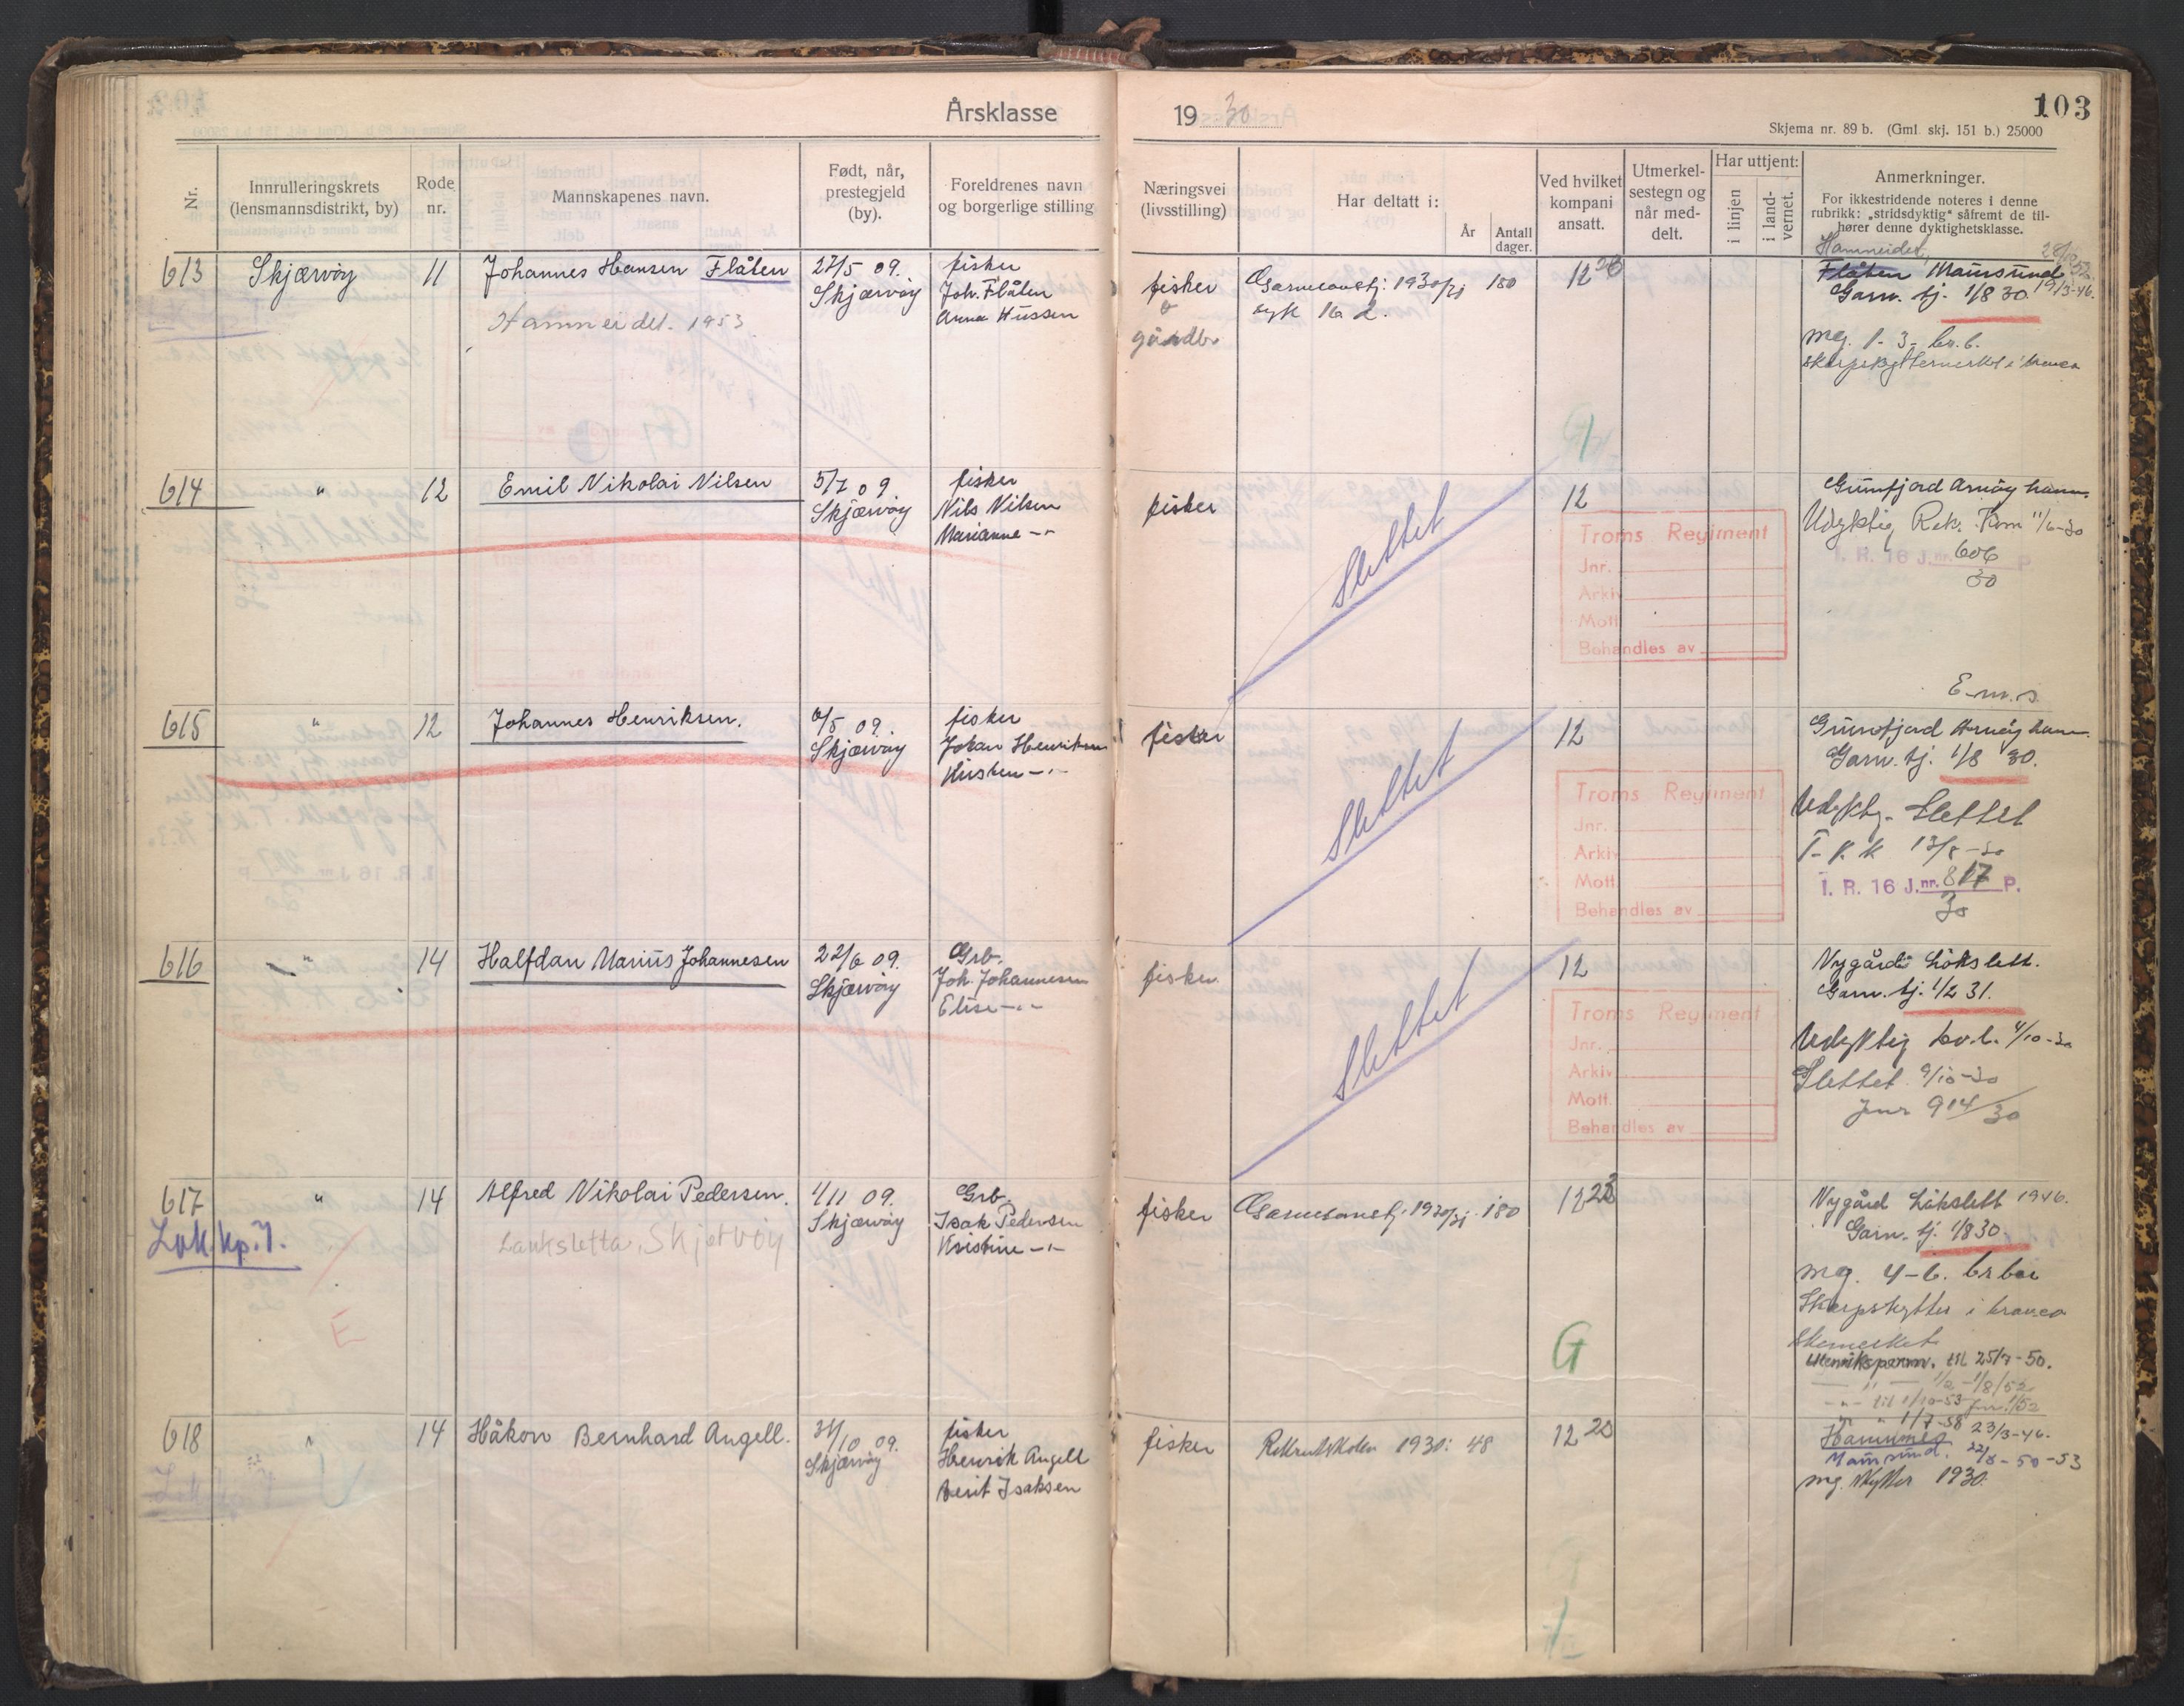 Årsklasse 1930
103
Skjema nr. 89 b. (Gml. skj. 151 b.) 25000
Nr.
Innrulleringskrets
(lensmannsdistrikt, by)
Rode
nr.
Mannskapenes navn.
Født, når,
prestegjeld
(by).
Foreldrenes navn
og borgerlige stilling
Næringsvei
(livsstilling)
Har deltatt i:
År
Antall
dager.
Ved hvilket
kompani
ansatt.
Utmerkel-
sestegn og
når med-
delt.
Har uttjent:
i linjen
i land-
vernet.
Anmerkninger.
For ikkestridende noteres i denne
rubrikk: „stridsdyktig“ såfremt de til-
hører denne dyktighetsklasse.
613
Skjærvøy
11
Johannes Hansen Flåten
Hamneidet. 1953
27/5 09.
Skjærvøy
fisker
Joh. Flåten
Anna Hussen
fisker
&
gårdbr
Garnisonstj. 1930/31 180
syk 16 d.
12
Hamneidet
Flåten Maursund
19/3-46.
Garn. tj. 1/8 30.
mg. 1-3-
614
"
12
Emil Nikolai Nilsen
5/7 09
Skjærvøy
fisker
Nils Nilsen
Marianne -"-
fisker
Slettet
12
Troms Regiment
Jnr.
Arkiv
Mott.
Behandles av
Grunfjord Arnøy hamn.
Udyktig Rek. Kom 11/6-30
I. R. 16 J.nr. 606 P
30
615
"
12
Johannes Henriksen.
6/5 09.
Skjærvøy
fisker
Johan Henriksen
Kristen -"-
fisker
Slettet
12
Troms Regiment
Jnr.
Arkiv
Mott.
Behandles av
E.m.s.
Grunfjord Arnøy hamn.
Garn. tj. 1/8 30.
Udyktig. Slettet
13/8-30
I. R. 16 J.nr. 817 P.
30
616
"
14
Halfdan Marius Johannesen
22/6 09.
Skjærvøy
Grb.
Joh. Johannesen
Elise -"-
fisker
Slettet
12
Troms Regiment
Jnr.
Arkiv
Mott.
Behandles av
Nygård Lökslett.
Garn. tj. 1/2 31.
Udyktig 4/10-30
Slettet 9/10-30
Jnr 914/30
617
Lok.kp.I.
"
14
E
Alfred Nikolai Pedersen.
Lauksletta, Skjervøy
1/11 09.
Skjærvøy
Grb.
Isak Pedersen
Kristine -"-
fisker
Garnisonstj. 1930/31 180
12
G
Nygård Lökslett 1946.
Garn. tj. 1/8 30.
mg. 4-6.
Skarpskytter i
til 25/7-50.
— " — 1/2-1/8/52
-"- til 1/10-53 Jnr. 1/52
" " 1/7-58
618
"
14
Håkon Bernhard Angell.
31/10 09.
Skjærvøy
fisker
Henrik Angell
Berit Isaksen
fisker
Rekrutskolen 1930: 48
12 20
Hamnnes 23/3-46.
Maursund. 22/8-50-53
mg. skytter 1930.